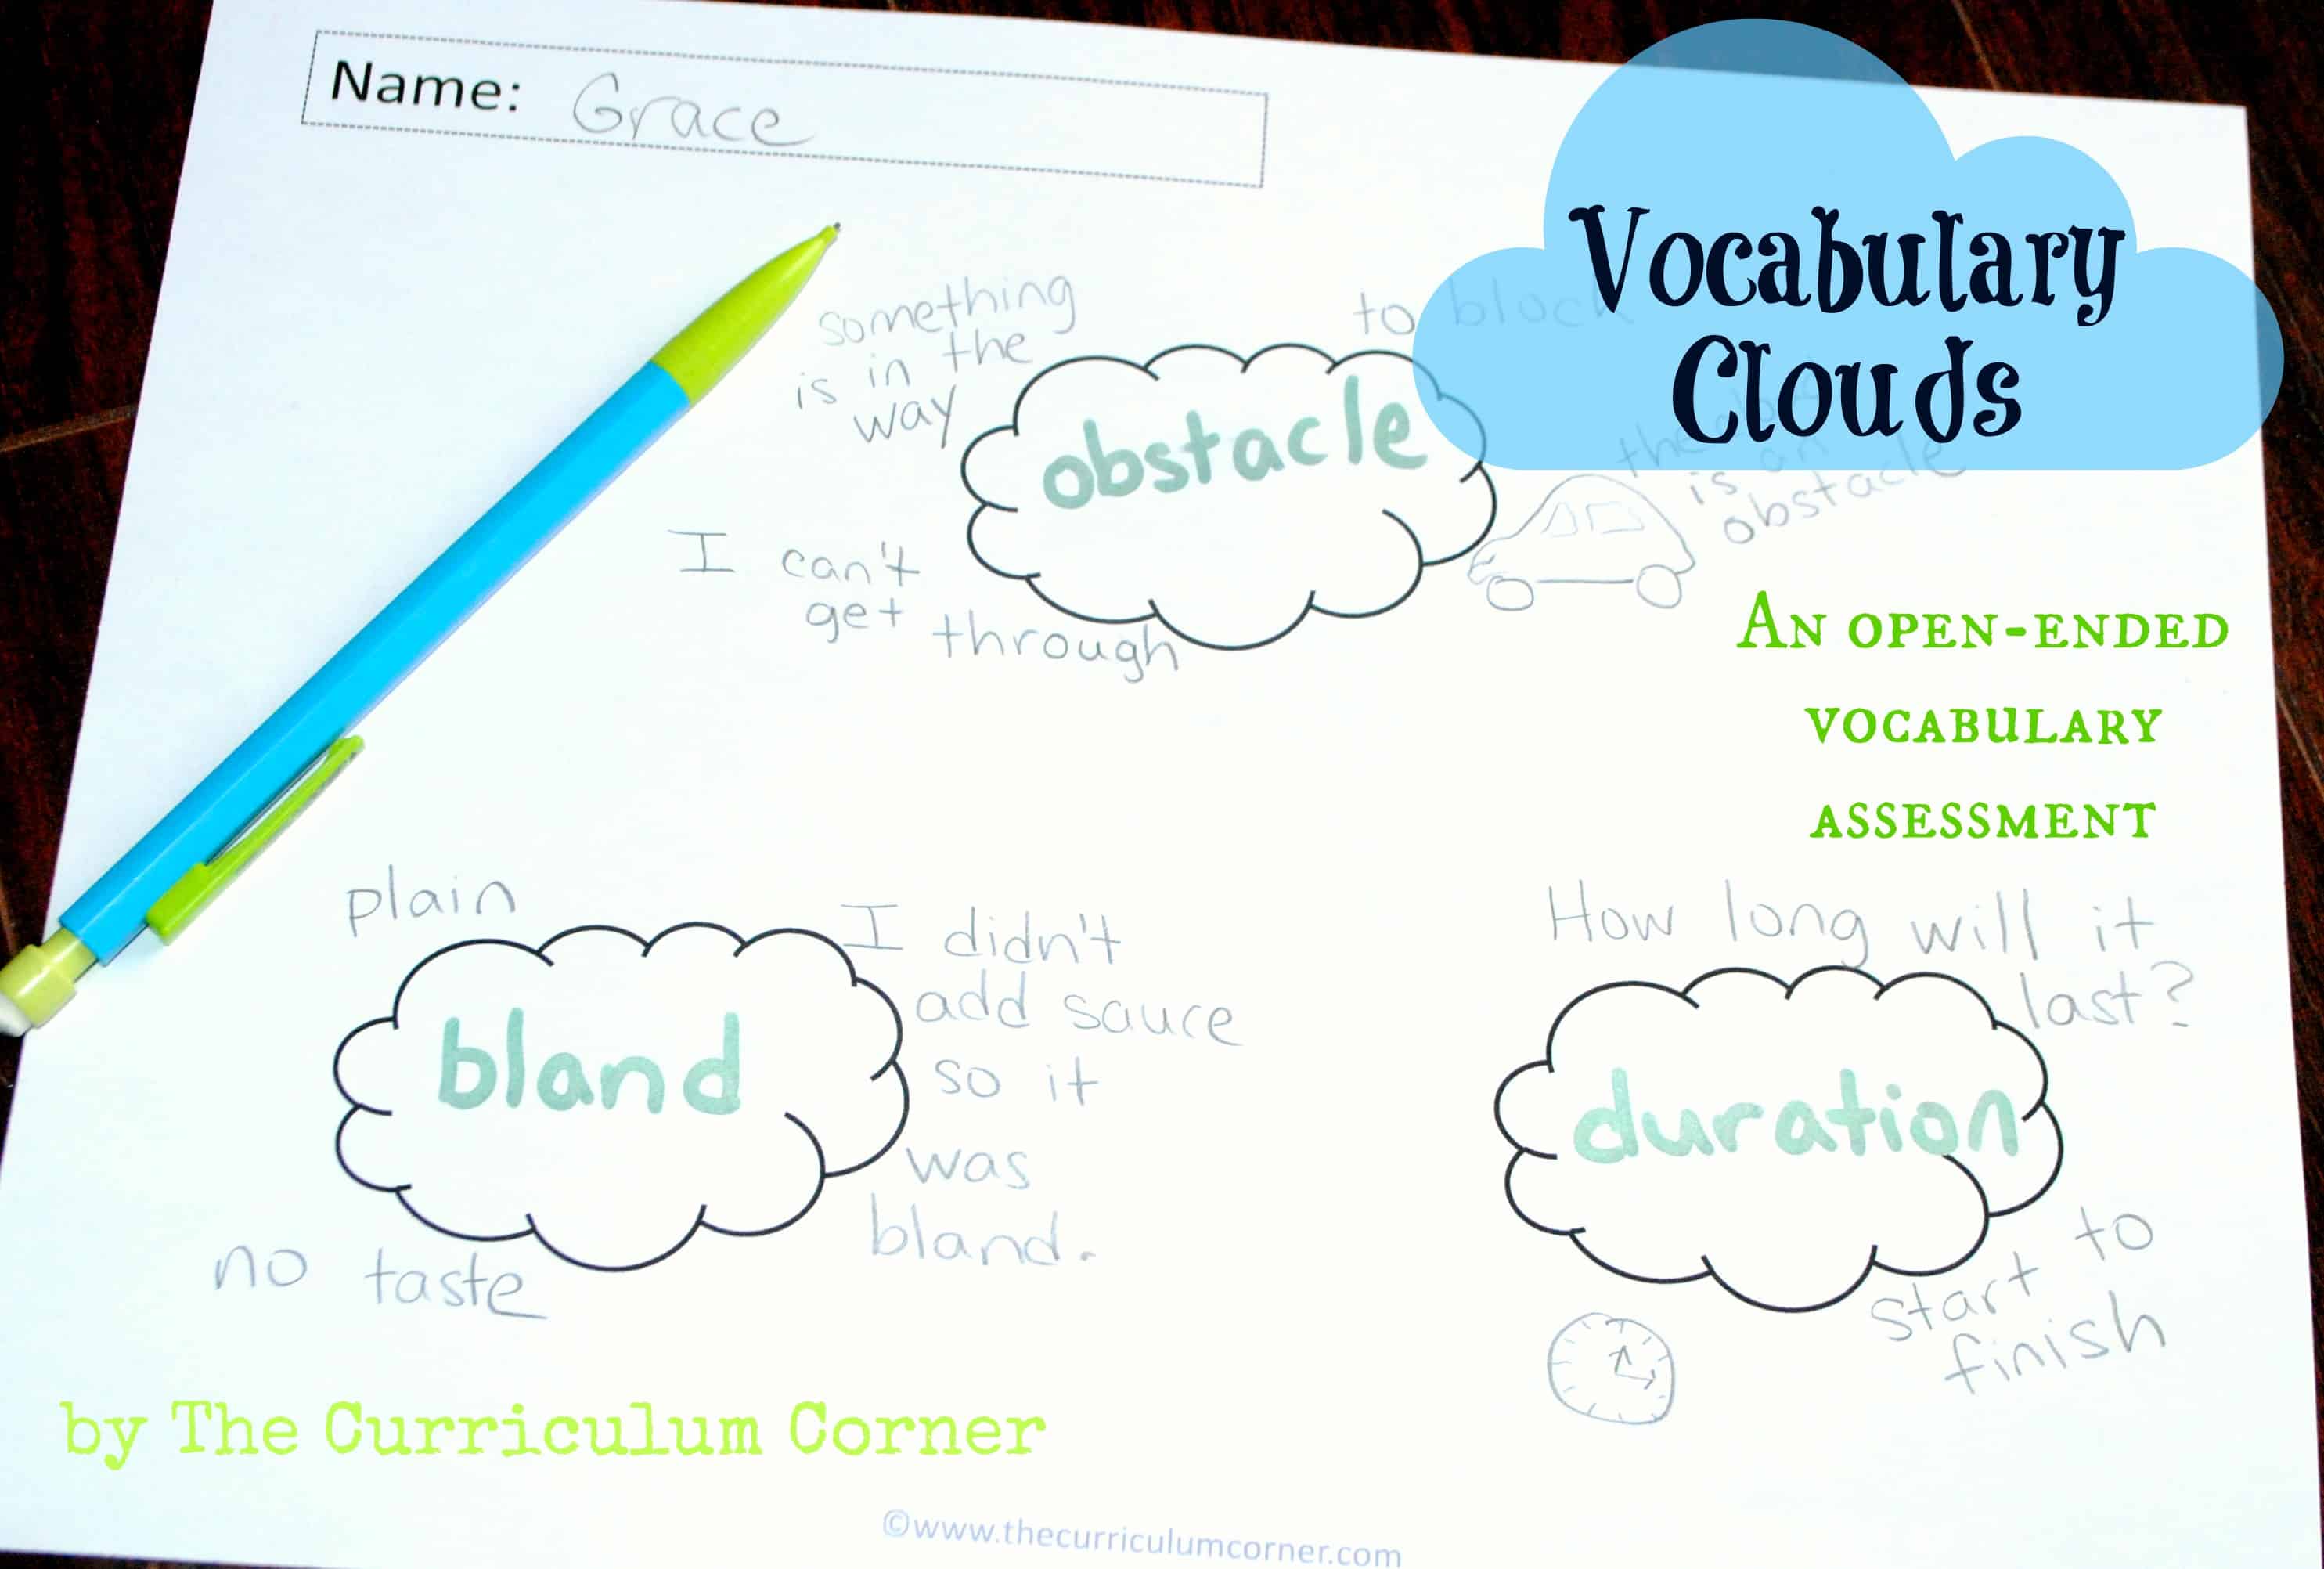 Name: Grace
Vocabulary
Clouds
something
is in the
way
to block
obstacle
I can't
get through
the
is an
obstacle
An open-ended
vocabulary
assessment
plain
bland
I didn't
add sauce
so it
was
bland.
no taste
How long will it
last?
duration
start to
finish
by The Curriculum Corner
©www.thecurriculumcorner.com